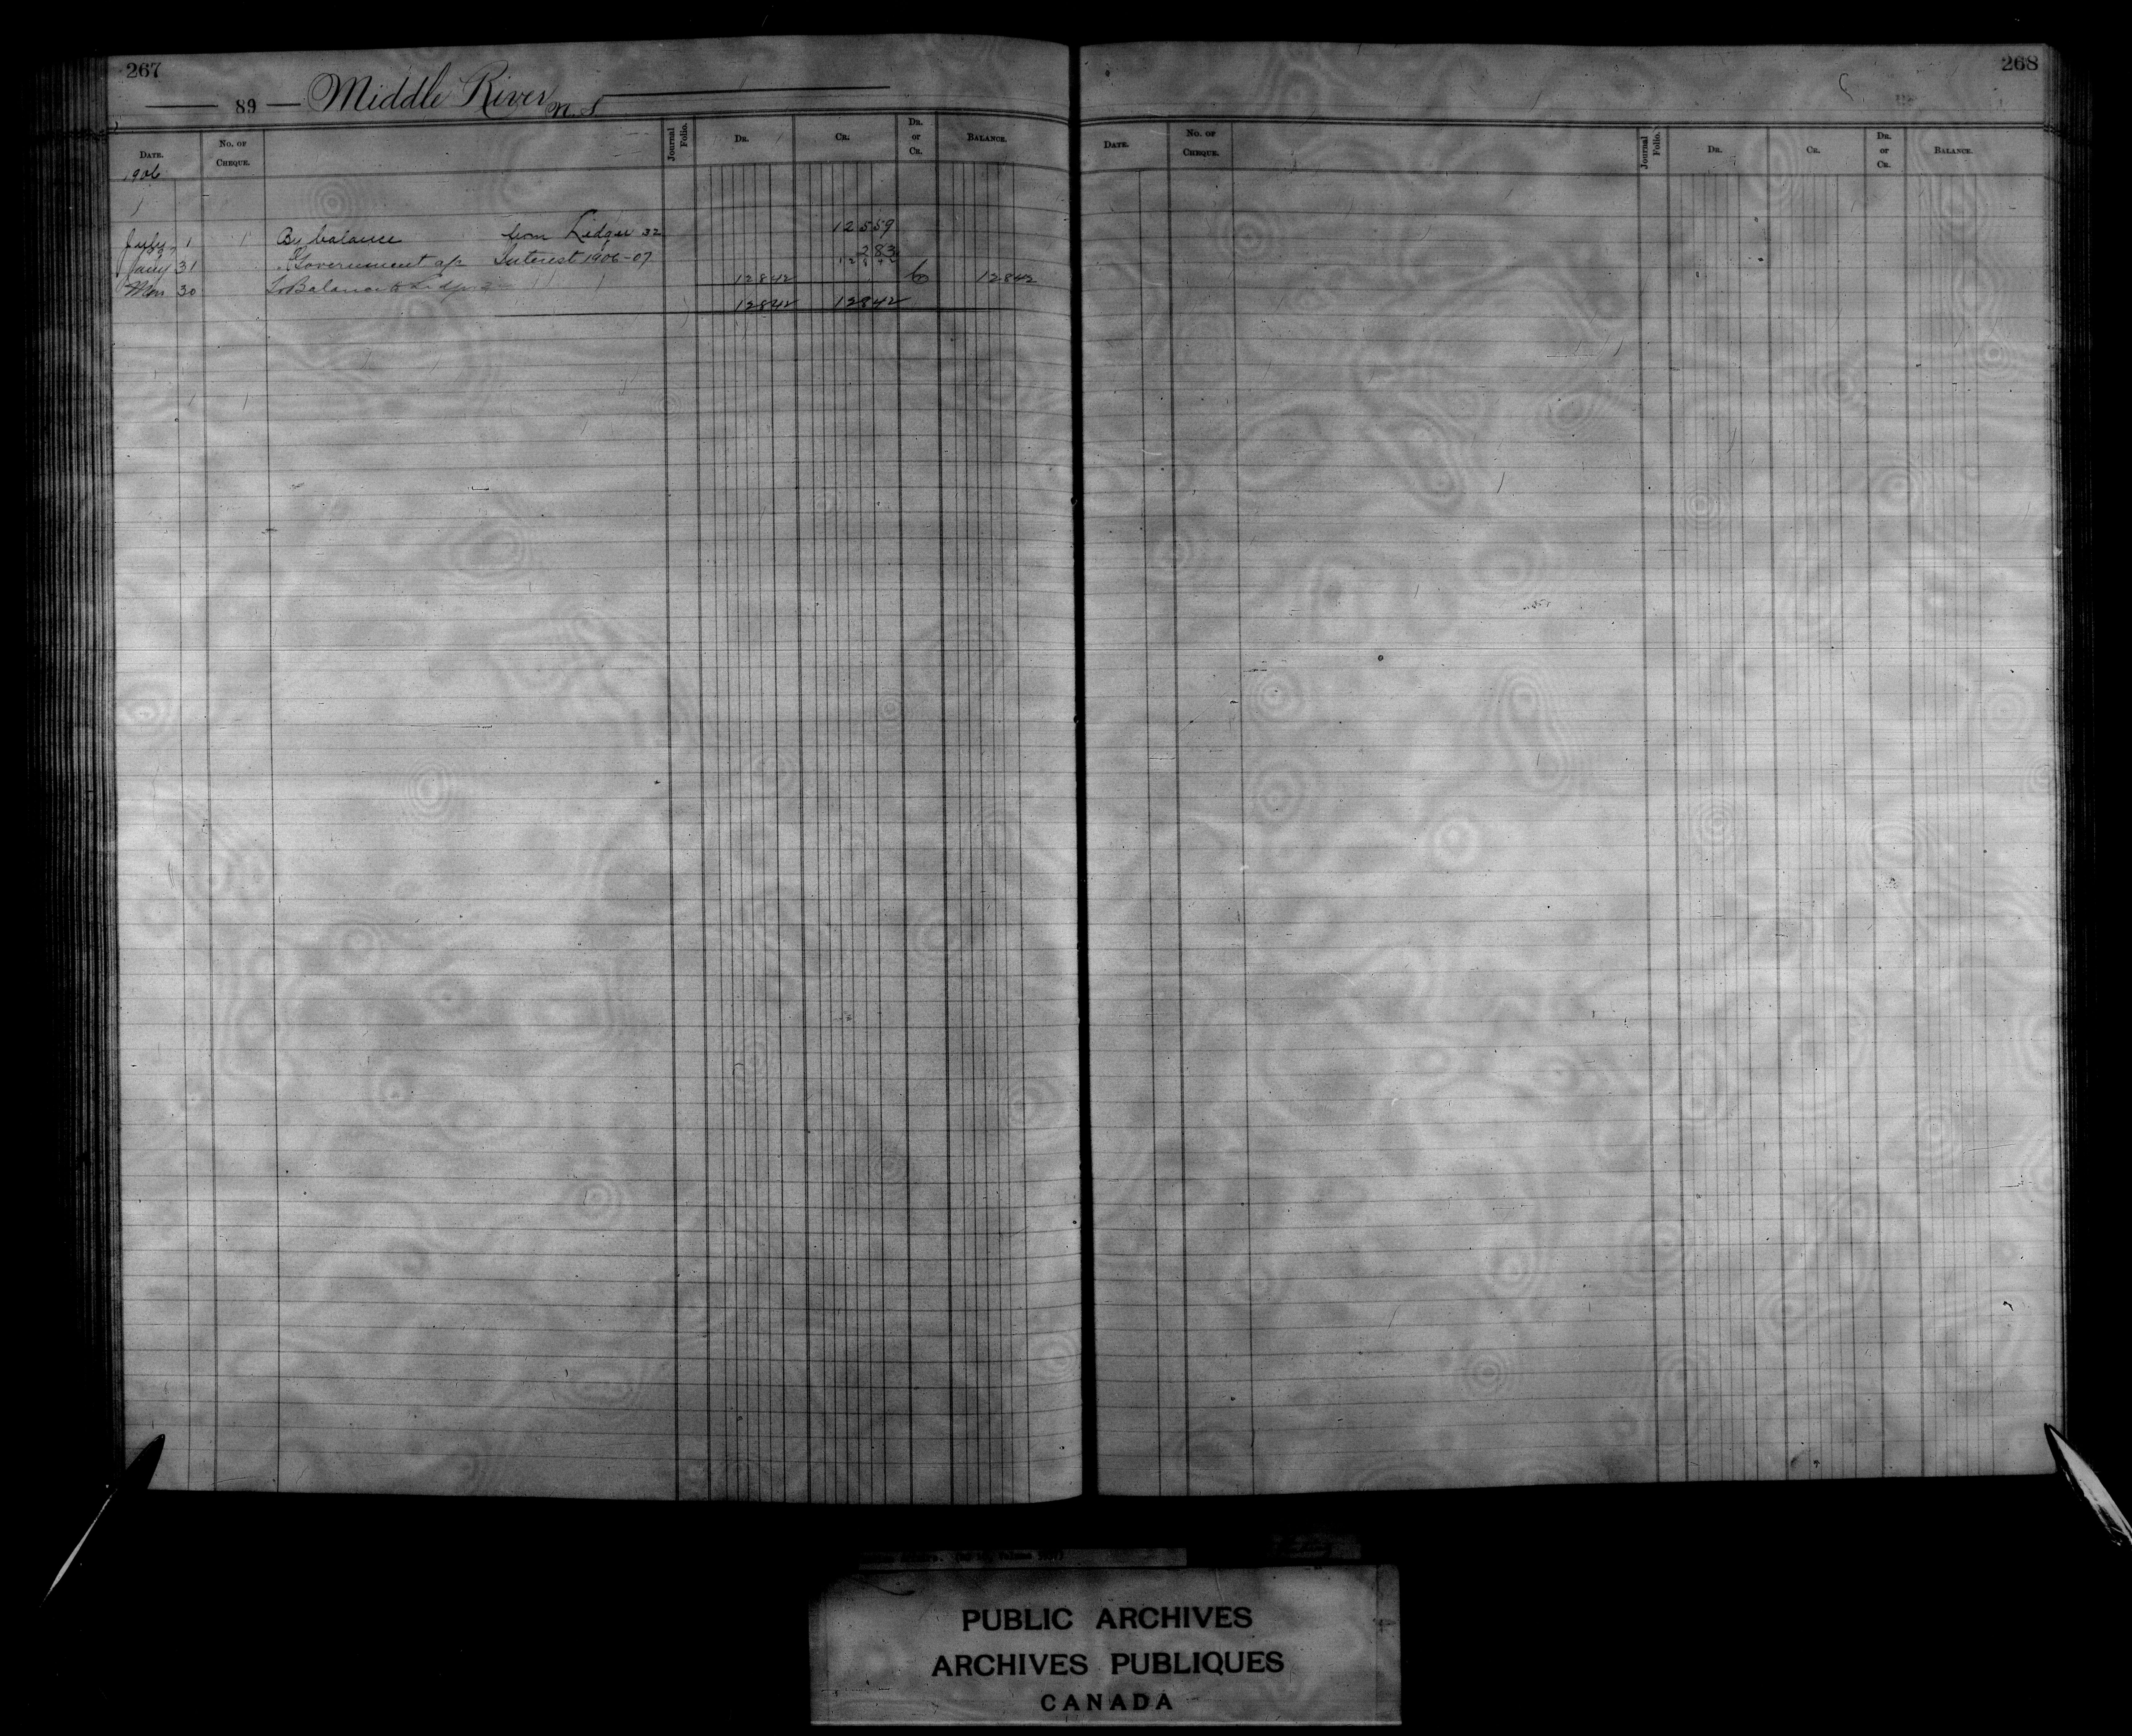 267
89 Middle River N. S
DATE. No. OF CHEQUE. Journal Folio. DR. CR. DR. or CR. BALANCE.
1906
July 1 By balance from Ledger 32 12559
07
Jany 31 Government a/c Interest 1906-07 283
12842
30 To Balance to 12842 Cr 12842
12842 12842
268
DATE. No. OF CHEQUE. Journal Folio. DR. CR. DR. or CR. BALANCE.
PUBLIC ARCHIVES
ARCHIVES PUBLIQUES
CANADA